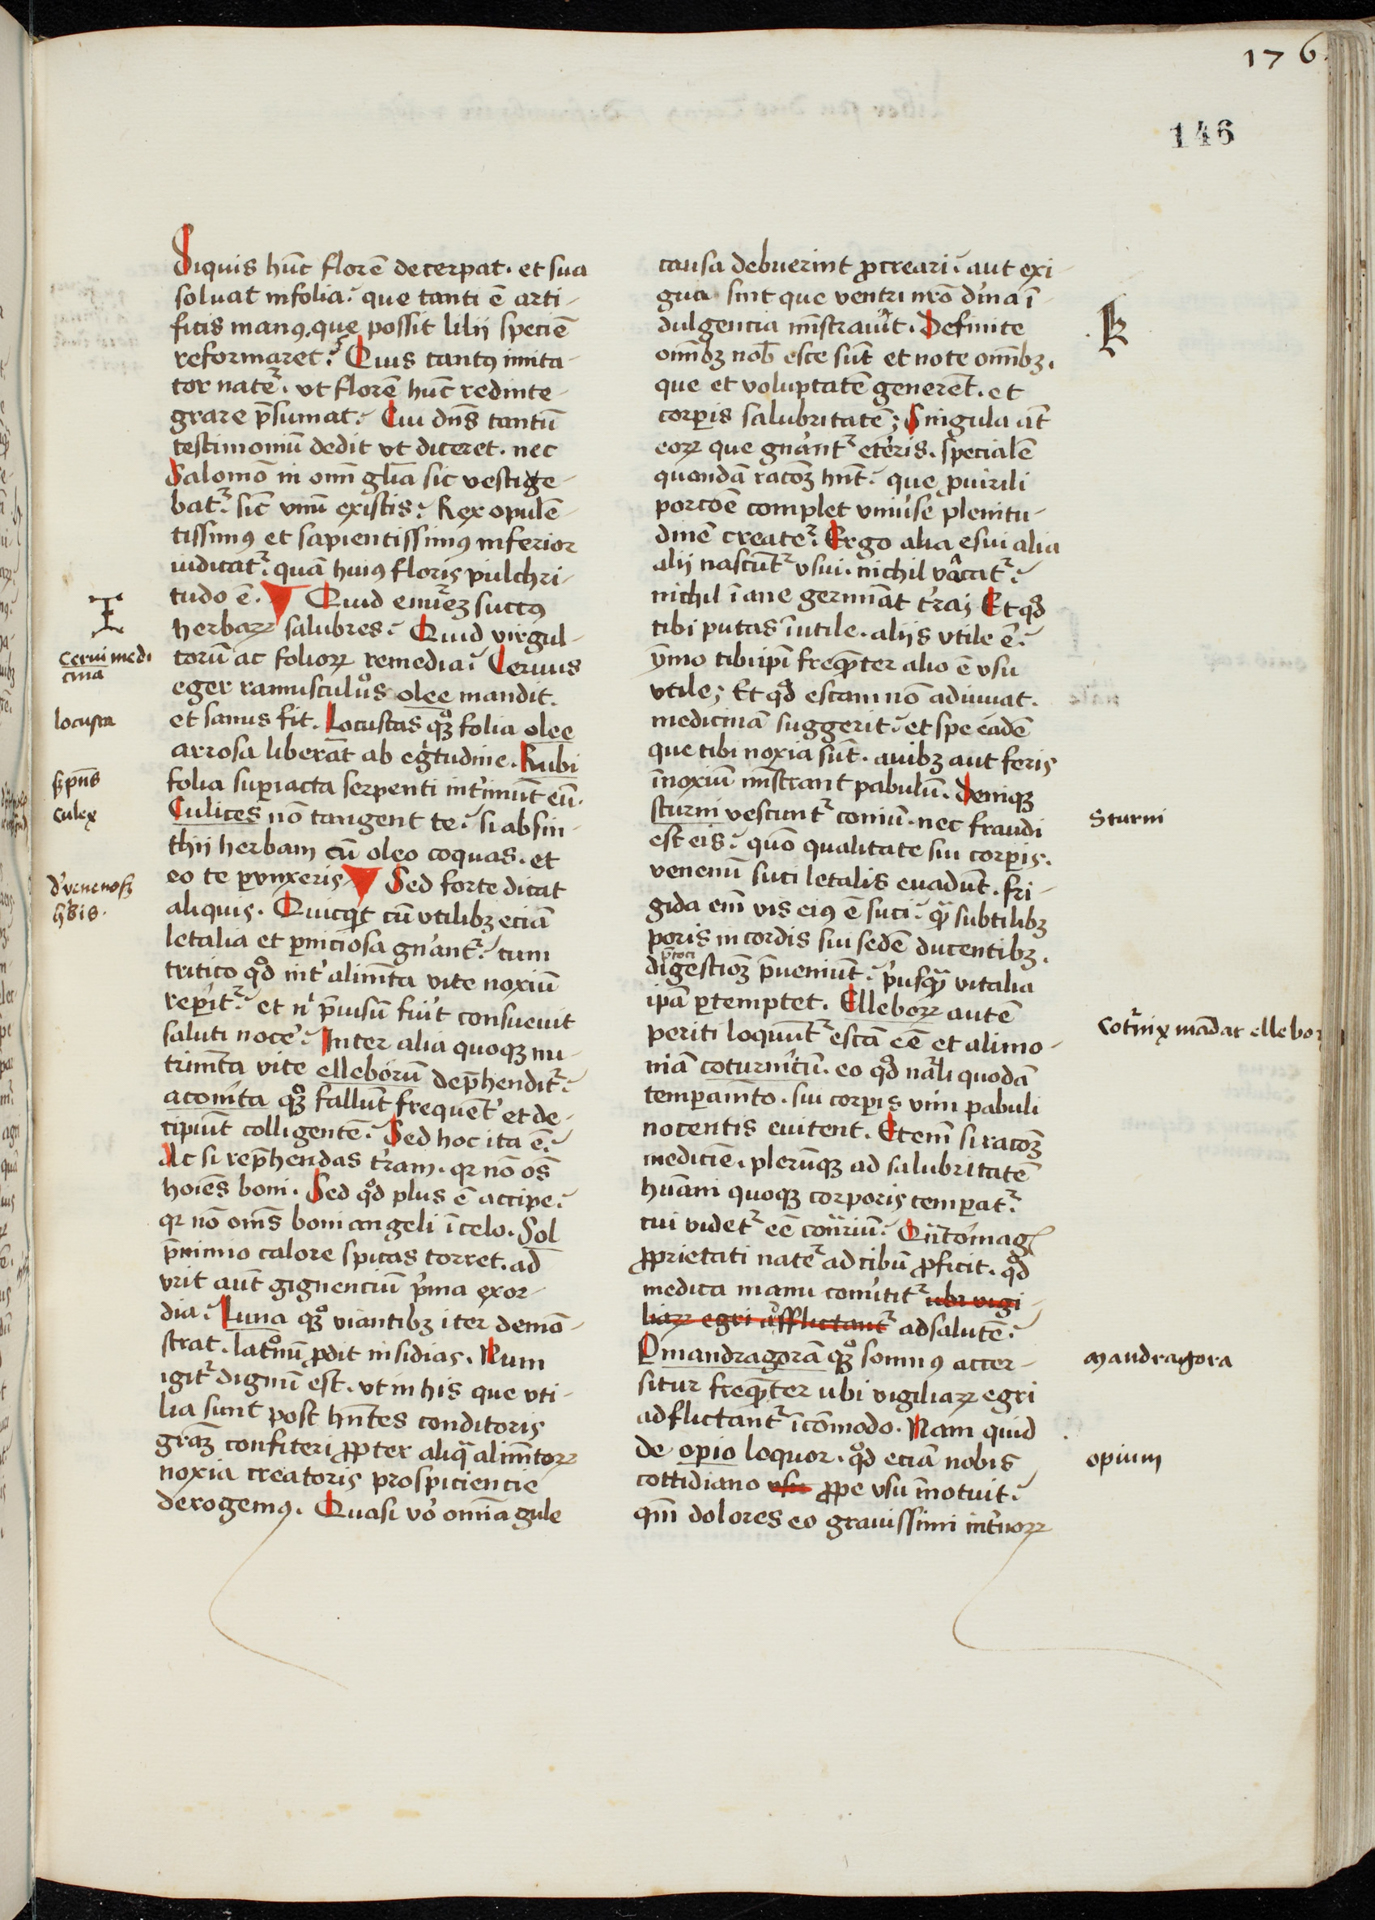 176
146
Siquis hūc florē decerpat. et sua
soluat in folia? que tanti ē arti-
ficis manꝰ, que possit lilij speciē
reformaret? Quis tantꝰ imita-
tor natē? vt florē hūc redinte-
grare p̄sumat? Cui dn̄s tantū
testimoniū dedit vt diceret. nec
Salomō in om̄i gl̄ia sic vestige-
bat᷑ sic̄ vnū existis? Rex opulē-
tissimꝰ et sapientissimꝰ inferior
iudicat᷑ quā huiꝰ floris pulchri-
tudo ē. Quid enum̄eꝫ succꝰ
herbaꝝ salubres? Quid virgul-
torū ac folioꝝ remedia? Ceruus
eger ramusculos olee mandit.
et sanus fit. Locustas qꝫ folia olee
arrosa liberāt ab egritudine. Rubi
folia superiacta serpenti intimūt eū.
Culices nō tangent te? si absin-
thij herbam cū oleo coquas. et
eo te pervnxeris Sed forte dicat
aliquis. Quicqt̄ cū vtilibꝫ eciā
letalia et ꝑniciosa gn̄ant᷑? cum
tritico qd̄ int̓ alim̄ta vite noxiū
reperit᷑? et n̓ p̄uisū fuit consueuit
saluti noce̓? Inter alia quoqꝫ nu-
trim̄ta vite elleborū dep̄hendit᷑?
aconita qꝫ fallūt frequēt̓ et de-
cipiūt colligentē? Sed hoc ita ē?
Ac si rep̄hendas t̓ram. qr nō os̄
hoīes boni. Sed qd̄ plus ē accipe?
qr nō om̄s boni angeli ī celo. Sol
p̄nimio calore spicas torret. ad
vrit aūt gignenciū p̓ma exor-
dia? Luna qꝫ viantibꝫ iter demō-
strat. latronū ꝓdit insidias. Num
igit᷑ dignū est. vt in his que vti-
lia sunt post hn̄tes conditoris
gr̄aꝫ confiteri ꝓpter aliqͣ alim̄toꝝ
noxia creatoris prospiciencie
derogemꝰ. Quasi vo̓ om̄ia gule
Cerui medi
cina
locusta
s̓pēns
culex
d̓ venenosꝫ
hb̓is.
causa debuerint ꝓcreari? aut exi-
gua sint que ventri nr̄o d̓ina ī-
dulgencia mīstrauit. Definite
om̄ibꝫ nob̄ esce sūt et note om̄ibꝫ.
que et voluptatē generēt. et
corꝑis salubritatē; Singula aūt
eoꝝ que gn̓ant᷑ et̓eris. specialē
quandā rac̄oꝫ hn̄t? que ꝑ uirili
porc̄oē complet vniu̓se plenitu-
dinē create᷑. Ergo alia esui alia
alij nascūt᷑ vsui. nichil vacat᷑?
nichil īane germīat t̓ra; Et qd̄
tibi putas īutile. alijs vtile ē?
ȳmo tibi ip̄i freqn̄ter alio ē vsu
vtile; Et qd̄ escam nō adiuuat.
medicinā suggerit? et sepe eadē
que tibi noxia sūt. auibꝫ aut feris
īnoxiū mīstrant pabulū. Deniqꝫ
sturni vescunt᷑ coniū. nec fraudi
est eis? quo qualitate sui corꝑis.
venenū suci letalis euadūt. fri-
gida em̄ vis eiꝰ ē suci? q̄ subtilibꝫ
poris in cordis sui sedē ducentibꝫ.
p̄coci
digestioꝫ p̄ueniūt? p̓usqꝫ vitalia
ip̄a ꝑtemptet. Elleboꝝ autē
periti loquūt᷑ escā eē et alimo-
niā coturnicū. eo qd̄ nāli quodā
temperam̄to. sui corꝑis vim pabuli
nocentis euitent. Etem̄ si rac̄oꝫ
medicīe. plerūqꝫ ad salubritatē
hūani quoqꝫ corporis temꝑat᷑
cui videt᷑ eē contr̄iū?
ꝓprietati natē᷑ ad cibū ꝓficit. qd̄
medica manu conu̓tit᷑ ubi uigi-
liaꝝ egri afflictant᷑ ad salutē?
P mandragorā qꝫ somnꝰ accer-
situr freqn̄ter ubi vigiliaꝝ egri
adflictant᷑ īcōmodo. Nam quid
de opio loquor. qd̄ eciā nobis
cottidiano usu ꝓpe vsu īnotuit?
qm̄ dolores eo grauissimi int̓noꝝ
Sturni
Cot̓nix mādat ellebor
Mandragora
opium